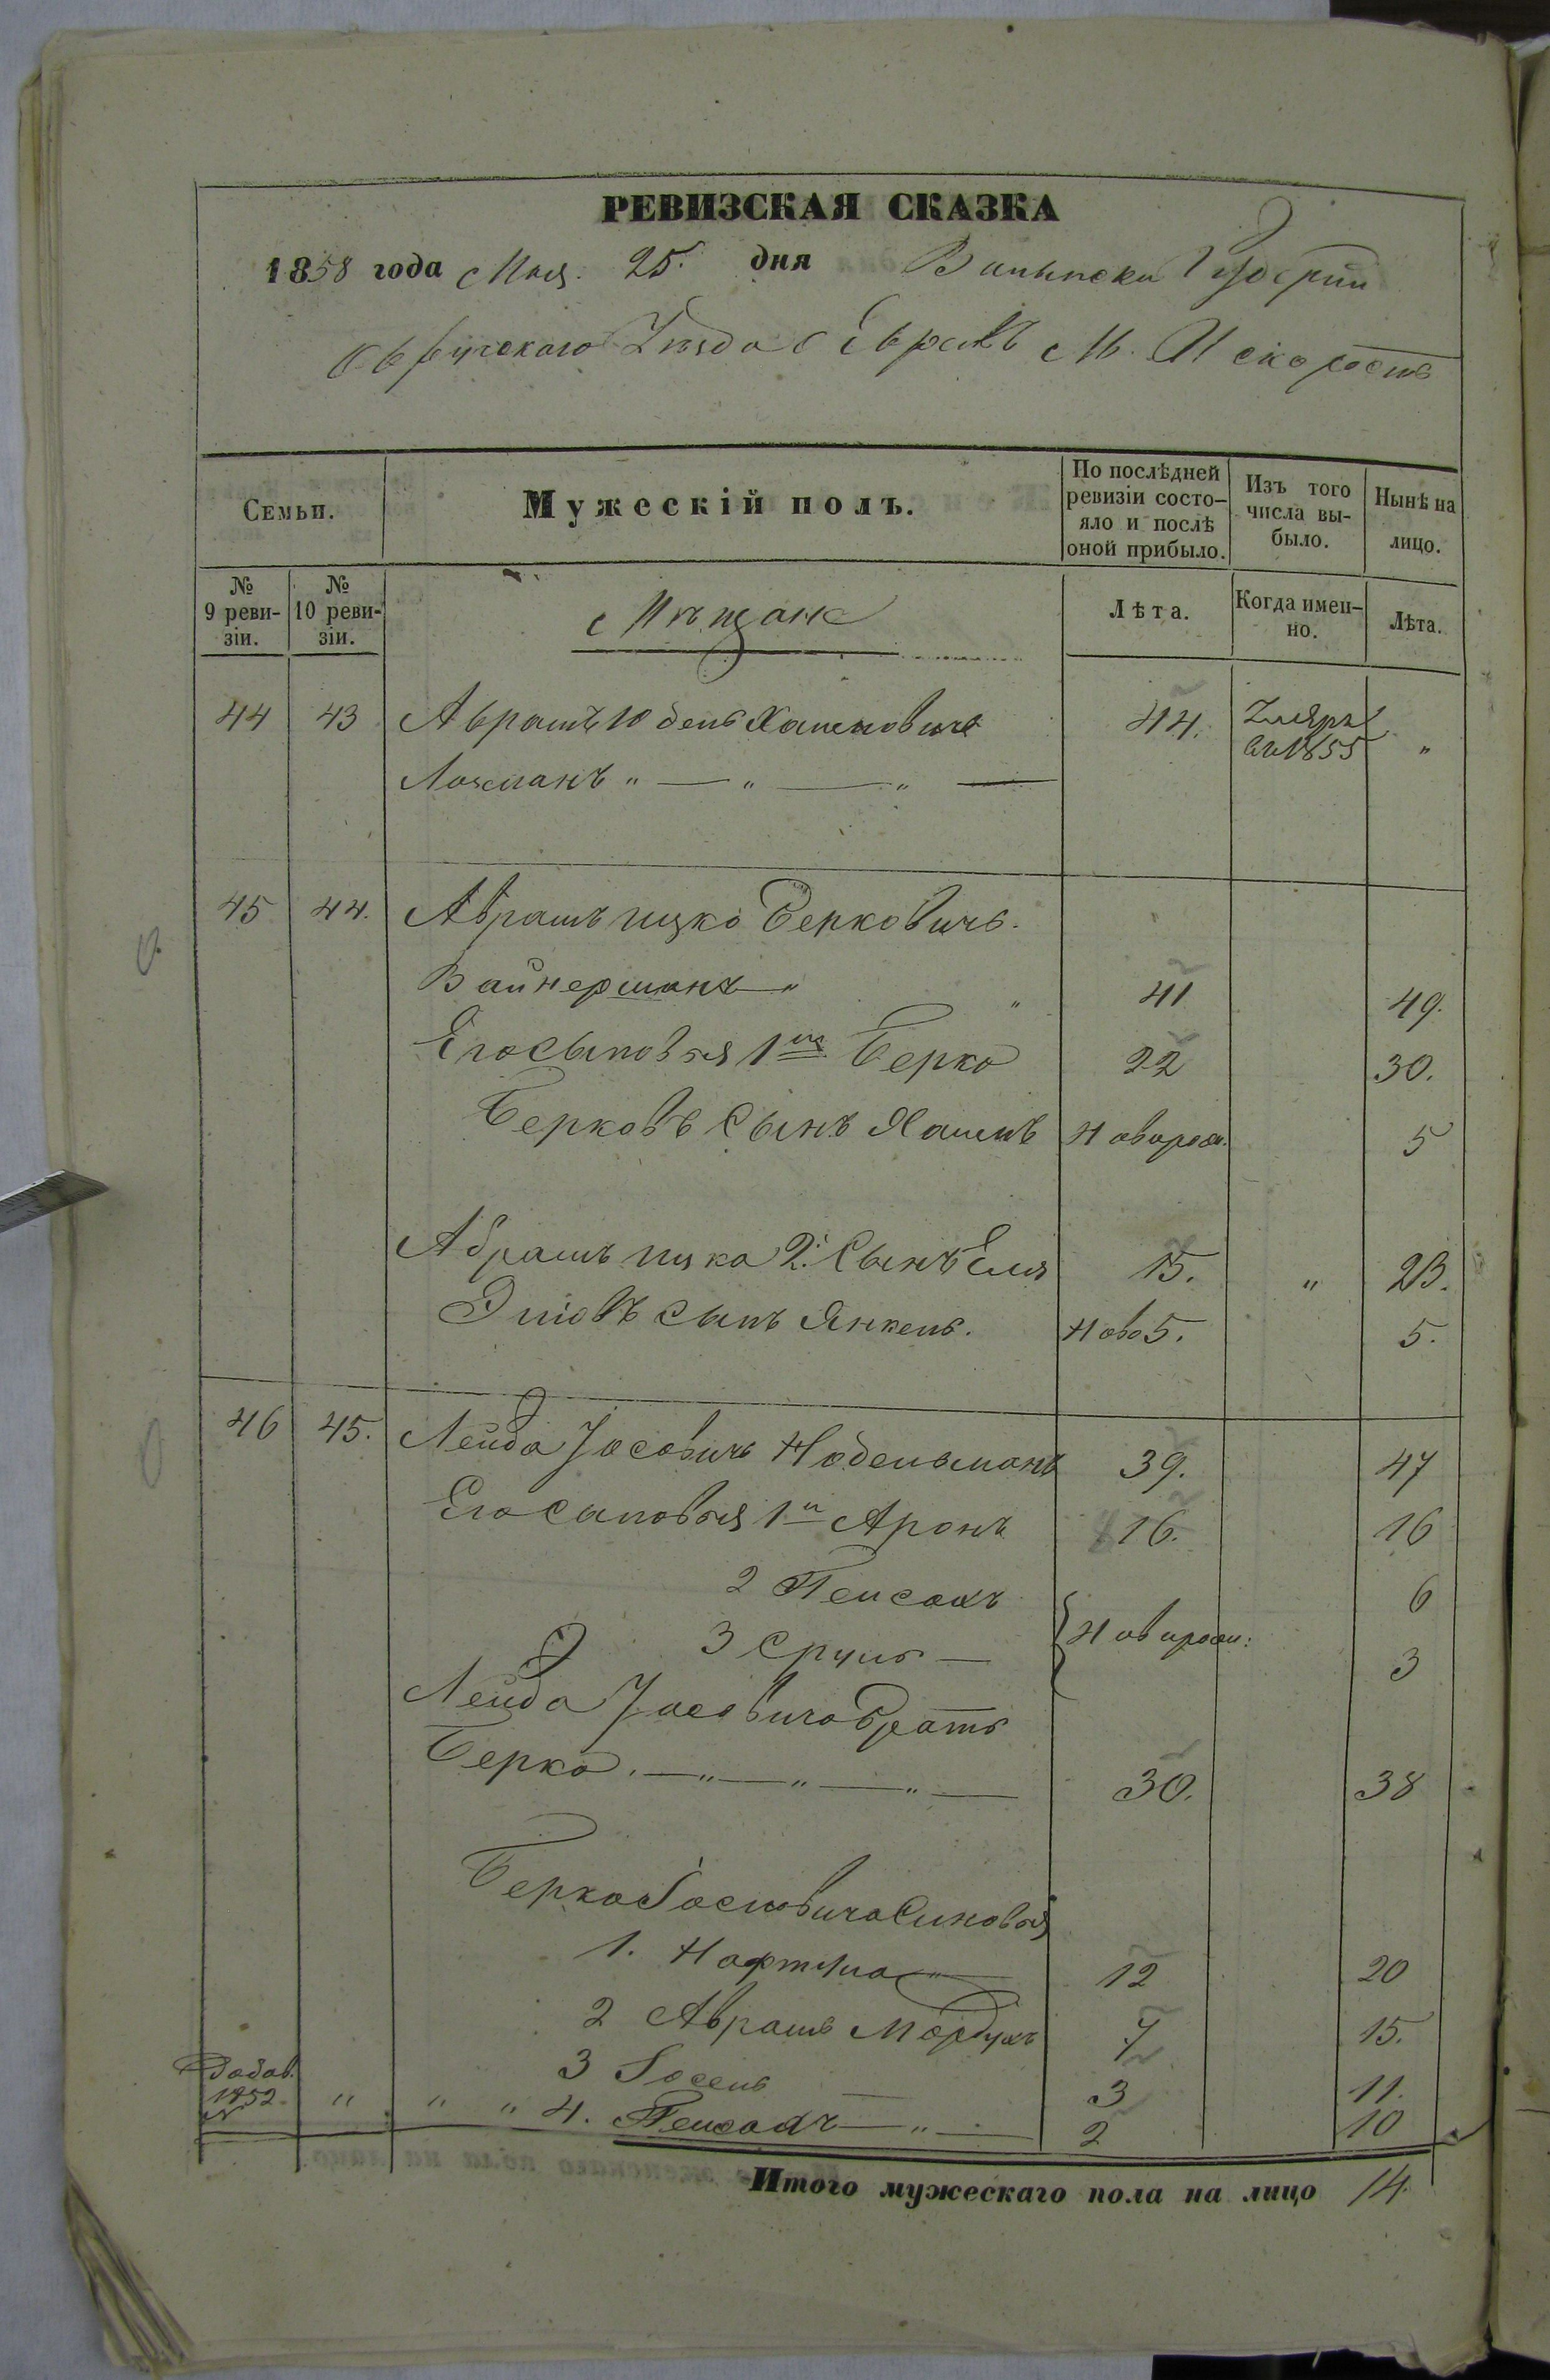 РЕВИЗСКАЯ СКАЗКА
1858 года Мая 25. дня Волынской Губерніи
Овручскаго Уѣзда о Евреяхъ М. Искорость
Семьи.
Мужескій полъ.
По послѣдней ревизіи состо-
яло и послѣ оной прибыло.
Изъ того числа вы-
было.
Нынѣ на лицо.
№ 9 реви-
зіи.
№ 10 реви-
зіи.
Мѣщане
Лѣта.
Когда имен-
но.
Лѣта.
44 43 Аврамъ Юдель Хаимовичъ 44. Умеръ
" — " — " — въ 1855 "
45 44. Аврамъ Ицко Берковичъ.
Вайнерманъ — " " 41 49.
Его сыновья 1й Берко 22 30.
Берковъ Сынъ Хаимъ Новорож. 5
Абрамъ Ицка 2й Сынъ Еля 15. " 23.
Эліовъ сынъ Янкель. Ново 5. 5.
46 45. Лейба Іосовичъ Нодельманъ 39. 47
Его сыновья 1й Аронъ 16. 16
2 Пейсахъ 6
3 Сруль — Новорож: 3
Лейба Іосовича Братъ
Берко. — " — " — " — 30. 38
Берка Іосіовича Сыновья
1. Нафтула — " — 12 20
2 Аврамъ Мордухъ 7 15.
3 Іосель — 3 11.
Добав. 1852. " " " 4. Пейсахъ — " — 2 10
Итого мужескаго пола на лицо 14.